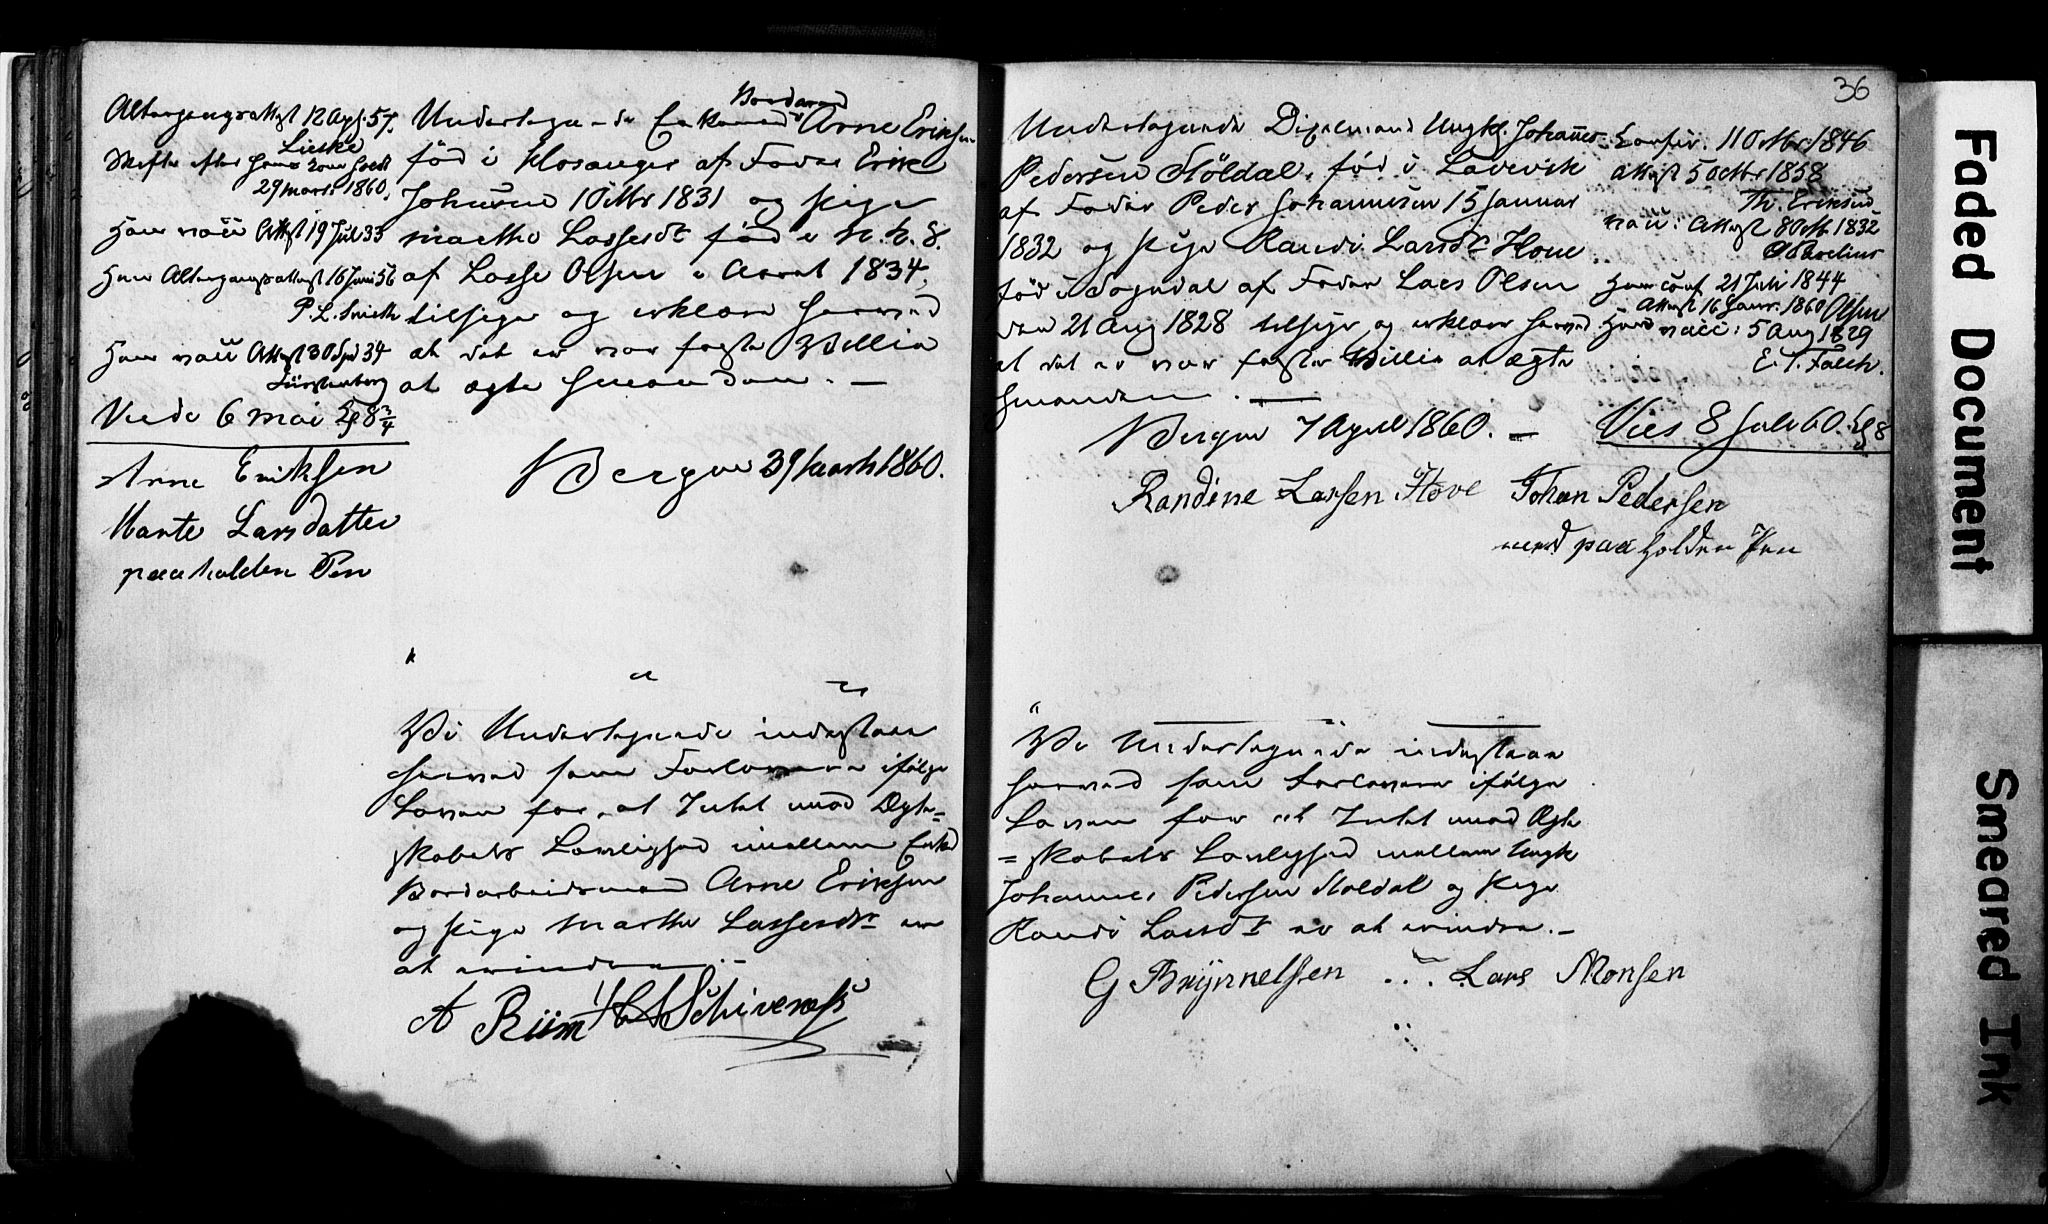 Altergangsattest 12 Apl. 57.
Lieske
Skifte efter Hans
29 Marts 1860.
Hans vacc Attest 19 Juli 33
Hans Altergangsattest 16 Juni 56
P. L. Smith
Hans vacc Attest 30 34
Fürstenberg
Viede 6 Mai Kl 8 3/4
Arne Eriksen
Marte Larsdatter
paaholden Pen
Undertegnede Enkemand Arne Eriksen
fød i Hosanger af Fader Erik
Johnsen 1 Octbr 1831 og Pige
Martha Lassesdt fød i N. K. S.
af Lasse Olsen i Aaret 1834,
tilsiger og erklære herved
at det er vor faste Villie
at ægte hinanden. —
Bergen 39 Marts 1860.
Vi Undertegnede indestaae
herved som Forlovere ifølge
Loven for, at Intet mod Ægte=
skabets Lovlighed imellem Enkd
Bordarbeidsmand Arne Eriksen
og Pige Martha Lassesdtr er
at erindre. —
A Riim
36
Undertegnede Ungk. Johannes
Pedersen Stöldal, fød i Ladevik
af Fader Peder Johannesen 15 Januar
1832 og Pige Randi Larsdt Hove
fød i Sogndal af Fader Lars Olsen
den 21 Aug 1828 tilsiger og erklære herved
at det er vor faste Villie at ægte
hinanden. —
Bergen 7 April 1860. —
Confir. 11 Octbr 1846
Attest 5 Octbr 1858
Th. Eriksen
vacc. Attest 8 Octb. 1832
Hun conf 21 Juli 1844
Attest 16 Janr. 1860 Olsen
Hun vacc: 5 Aug 1829
E. T. Falch.
Vies 8 Juli 60. Kl 8
Randine Larsen Hove Johan Pedersen
med paaholden Pen
Vi Undertegnede indestaae
herved som Forlovere ifølge
Loven for at Intet mod Ægte
=skabets Lovlighed mellem Ungk
Johannes Pedersen Stoldal og Pige
Randi Larsdt er at erindre. —
G Brynnelsen Lars Monsen
Faded Document
Smeared Ink